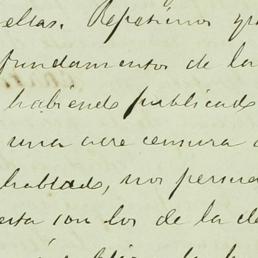 ellas. Repetimos que
fundamentos de la
habiendo publicado
una acre censura
hablado, nos persua
esta con los de la de